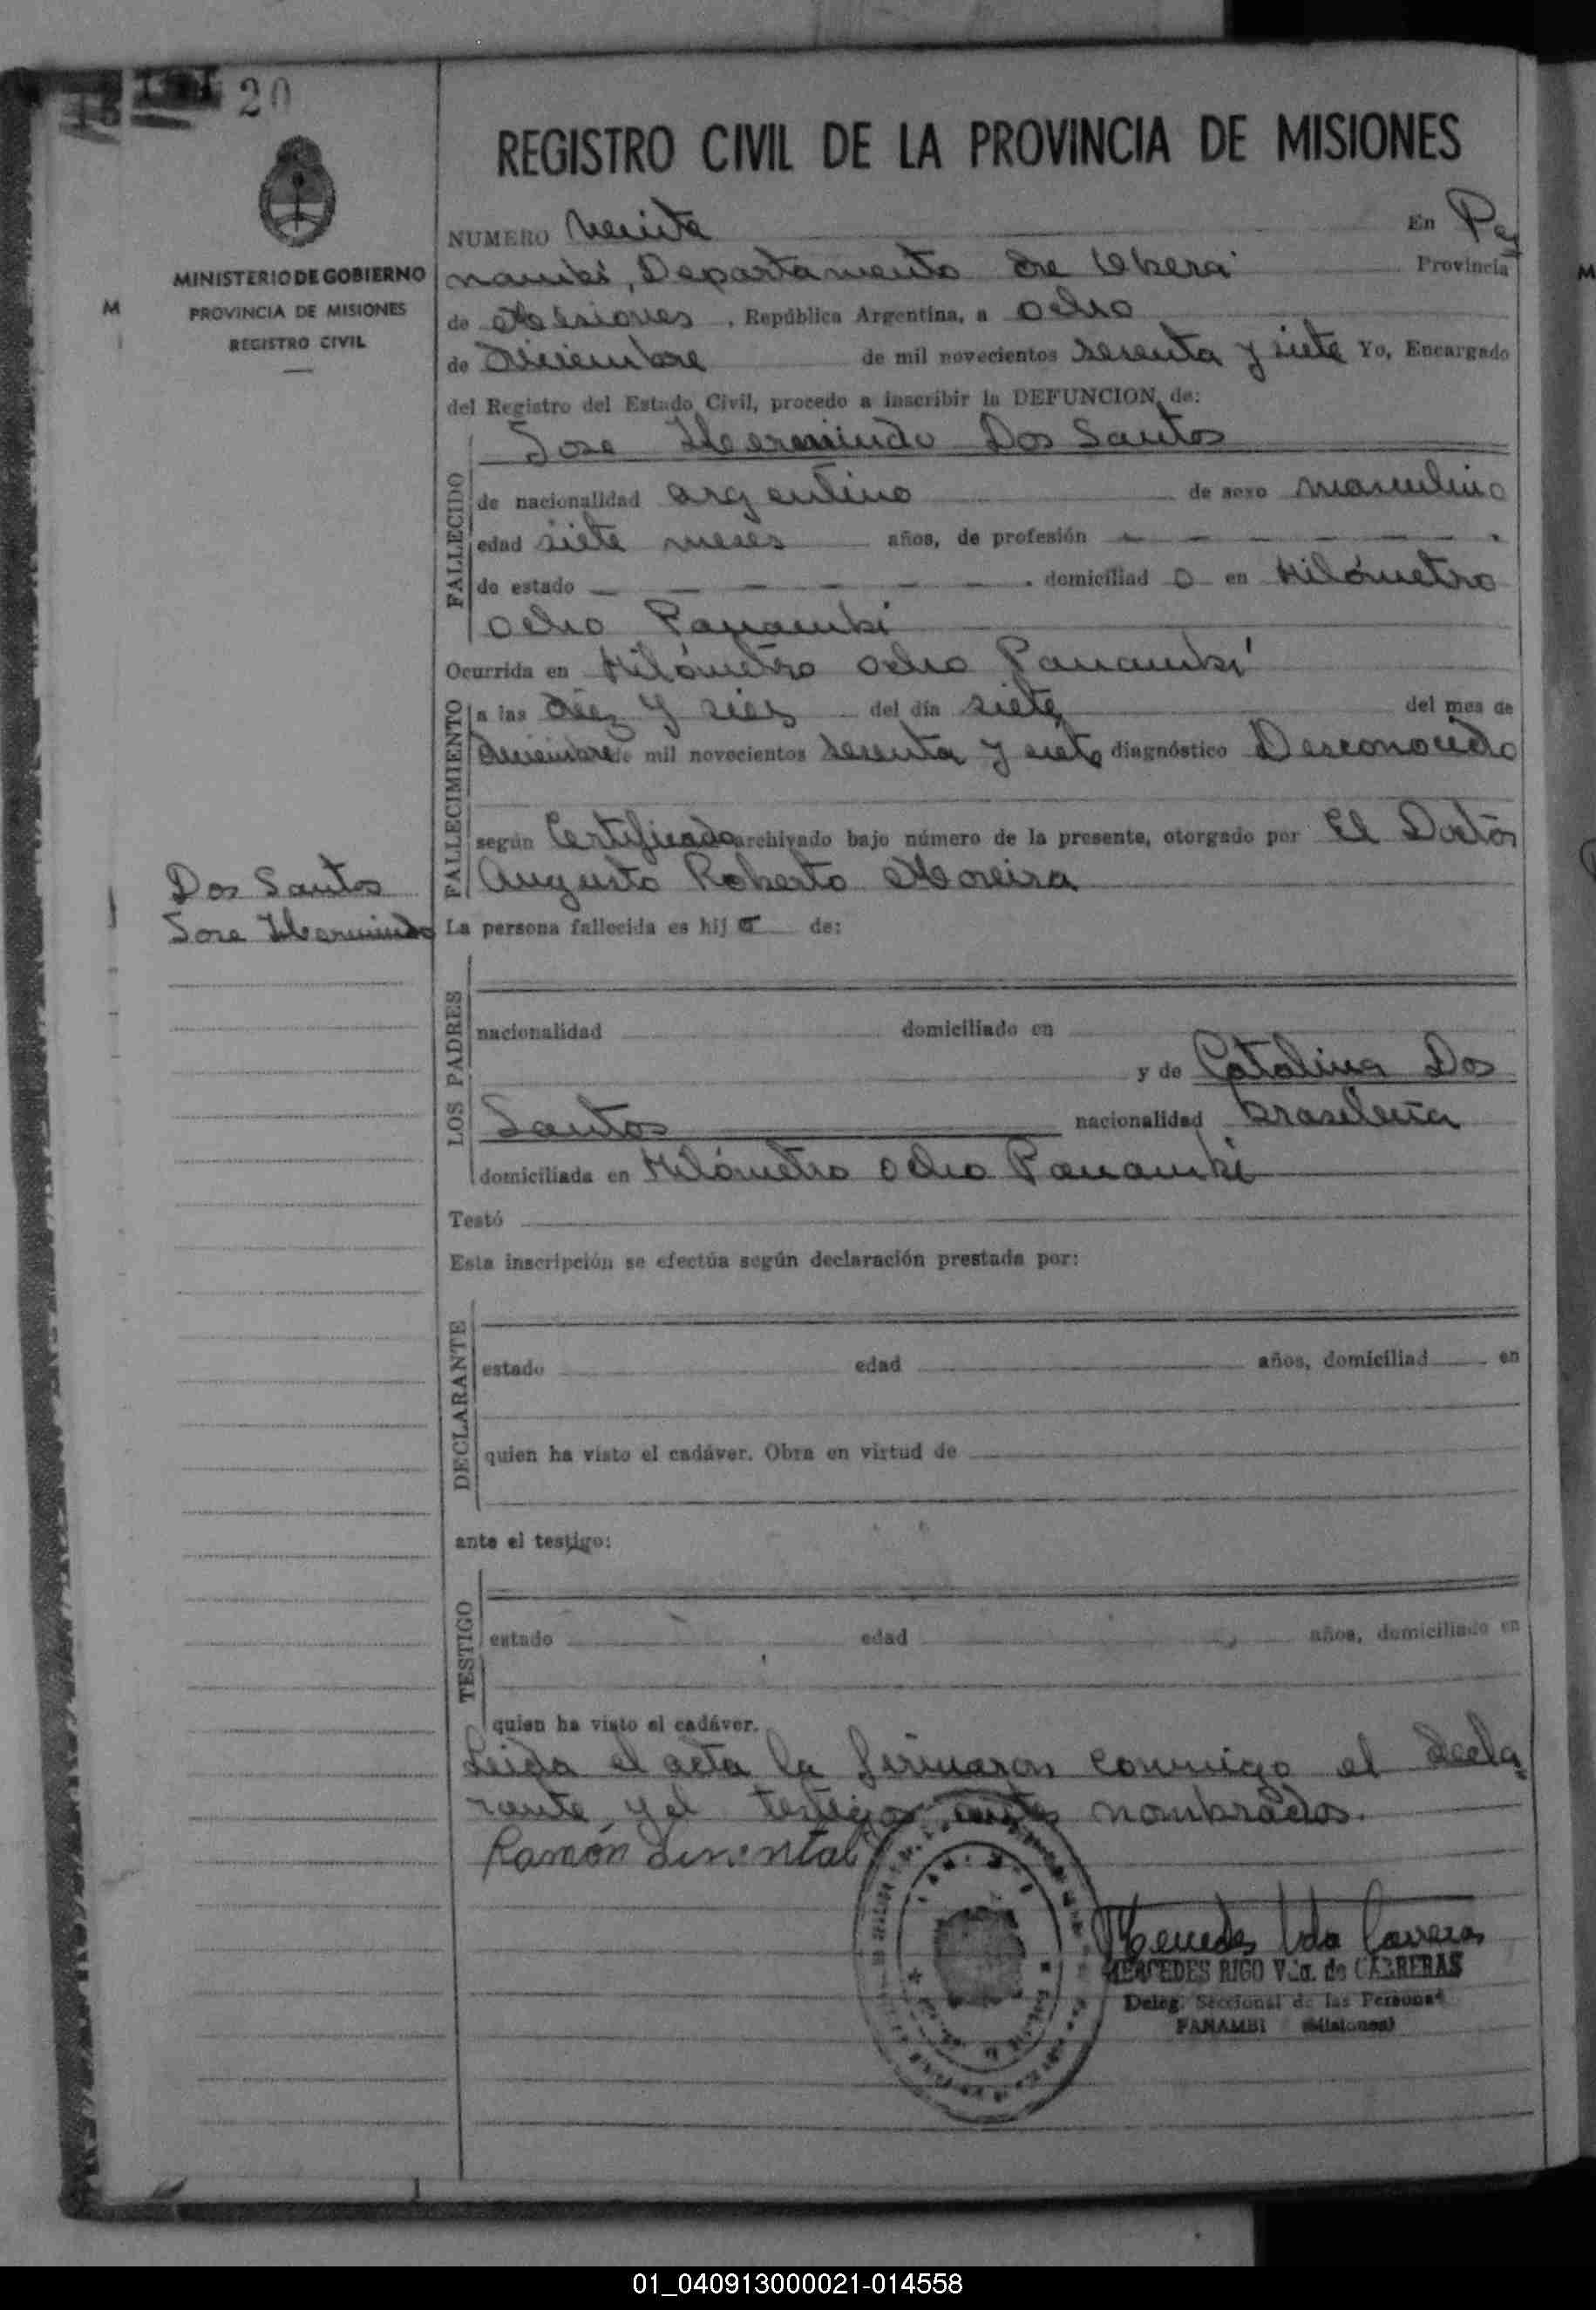 20
REGISTRO CIVIL DE LA PROVINCIA DE MISIONES
MINISTERIO DE GOBIERNO
PROVINCIA DE MISIONES
REGISTRO CIVIL
M
NUMERO Veinte En Pa
nambí, Departamento de Oberá Provincia
de Misiones, República Argentina, a ocho
de Diciembre de mil novecientos sesenta y siete Yo, Encargado
del Registro del Estado Civil, procedo a inscribir la DEFUNCION de:
FALLECIDO
Jose Hermindo Dos Santos
de nacionalidad argentino de sexo masculino
edad siete meses años, de profesión — — — — — .
de estado — — — — — — . domiciliad o en Kilómetro
ocho Panambí
Ocurrida en Kilómetro ocho Panambí
FALLECIMIENTO
a las diez y seis del día siete del mes de
diciembre de mil novecientos sesenta y siete diagnóstico Desconocido
según Certificado archivado bajo número de la presente, otorgado por El Doctor
Augusto Roberto Moreira
Dos Santos
Jose Hermindo
La persona fallecida es hij o de:
LOS PADRES
nacionalidad domiciliado en
y de Catalina Dos
Santos nacionalidad brasileña
domiciliada en Kilómetro ocho Panambí
Testó
Esta inscripción se efectúa según declaración prestada por:
DECLARANTE
estado edad años, domiciliad en
quien ha visto el cadáver. Obra en virtud de
ante el testigo:
TESTIGO
estado edad años, domiciliado en
quien ha visto el cadáver.
Leida el acta la firmaron conmigo el decla
rante y el testigo antes nombrados.
Ramón
Mercedes Vda Carreras
MERCEDES RIGO Vda. de CARRERAS
Deleg. Seccional de las Personas
PANAMBI (Misiones)
01_040913000021-014558